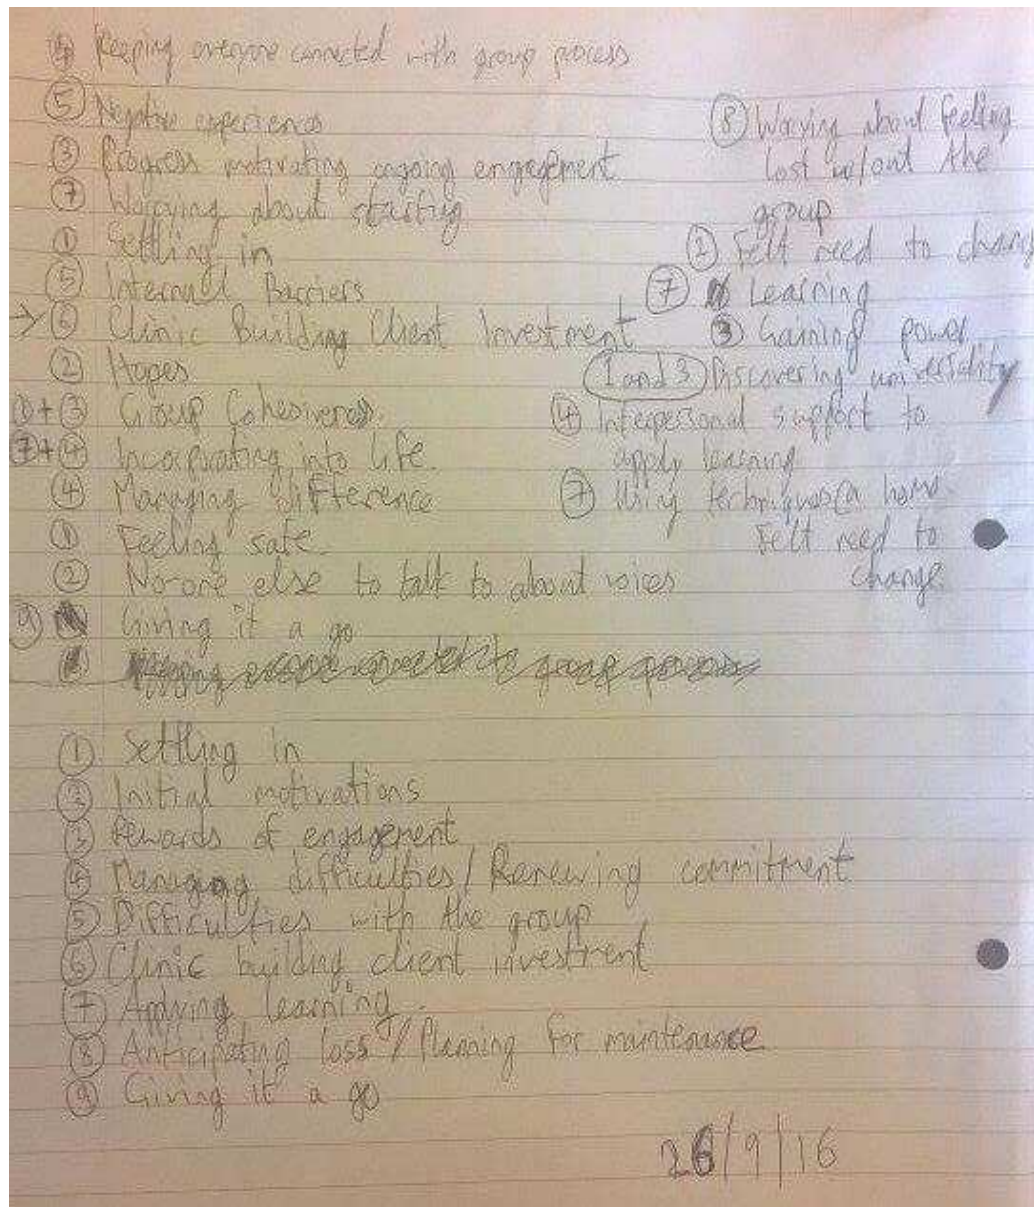 ④ Keeping everyone connected with group process
⑤ Negative experiences
③ Progress motivating ongoing engagement
⑦ Worrying about starting
① Settling in
⑤ Internal Barriers
→ ⑥ Clinic Building Client Investment
② Hopes
①+③ Group Cohesiveness.
⑦+④ Incorporating into life.
④ Managing difference
① Feeling safe.
② No-one else to talk to about voices
⑨ Giving it a go
⑧ Worrying about feeling
lost w/out the
group
② Felt need to chang
⑦ Learning
③ Gaining power
1 and 3 Discovering universality
④ Interpersonal support to
apply learning
⑦ Using techniques @ home
Felt need to
change.
① Settling in
② Initial motivations
③ Rewards of engagement
④ Managing difficulties / Renewing commitment
⑤ Difficulties with the group
⑥ Clinic building client investment
⑦ Applying learning.
⑧ Anticipating loss / Planning for maintenance
⑨ Giving it a go
26/9/16